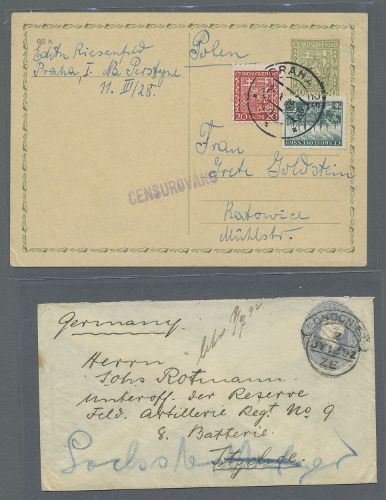 60 h
Edith Riesenfeld
Praha, I. Na Perstyně
11. III/28.
Polen
ČESKOSLOVENSKO
20 20
PRAHA
CENSUROVÁNO
Frau
Grete Goldstein
Katowice
Mühlstr.
Germany.
LONDON
JY 12 92
Herrn
Sohs Rotmann
Unteroff. der Reserve
Feld. Artillerie Regt. No 9
8. Batterie.